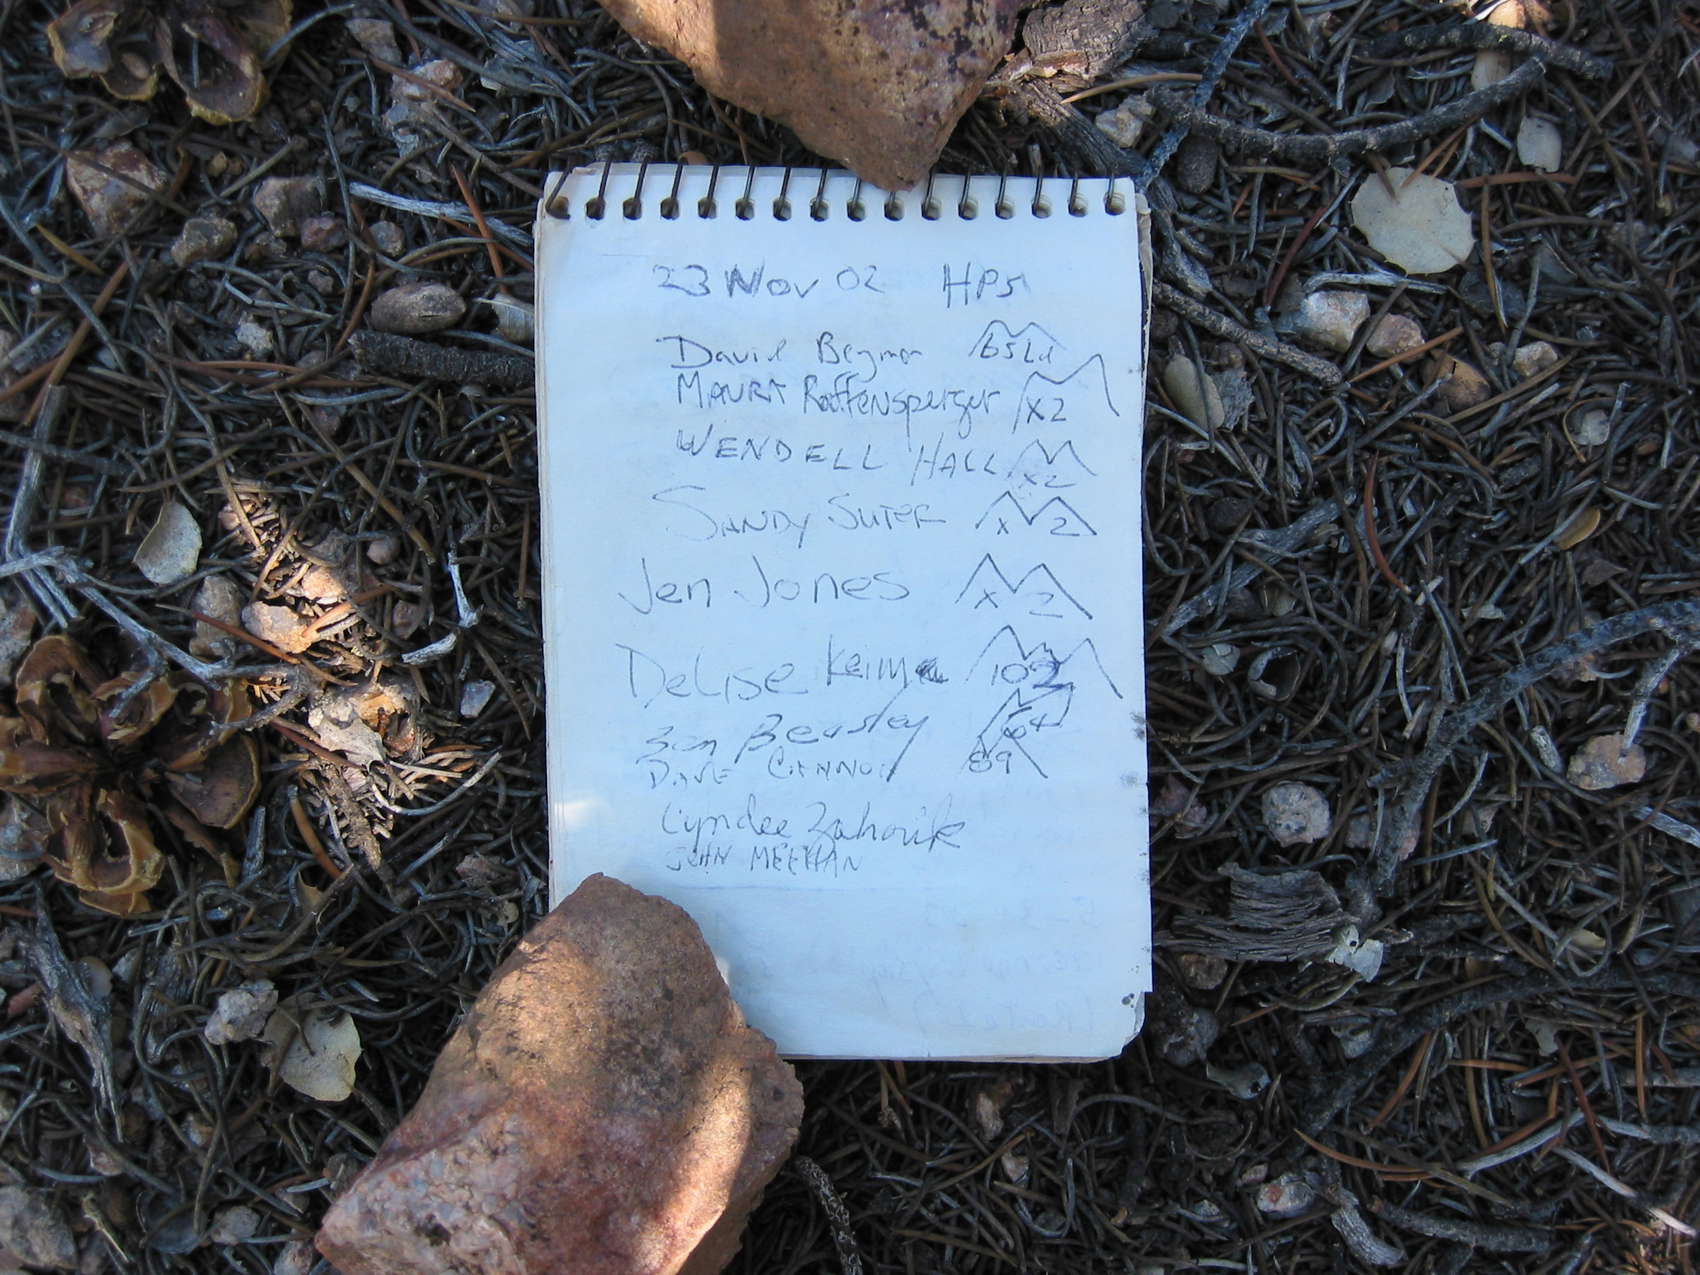 23 Nov 02 HPS
David Beymer
MAURA Raffensperger x2
WENDELL HALL x2
SANDY SUTER x 2
Jen Jones x 2
DeLise Keim 102
Beasley 64
DAVE CANNON 89
Cyndee Zahorik
JOHN MEEHAN